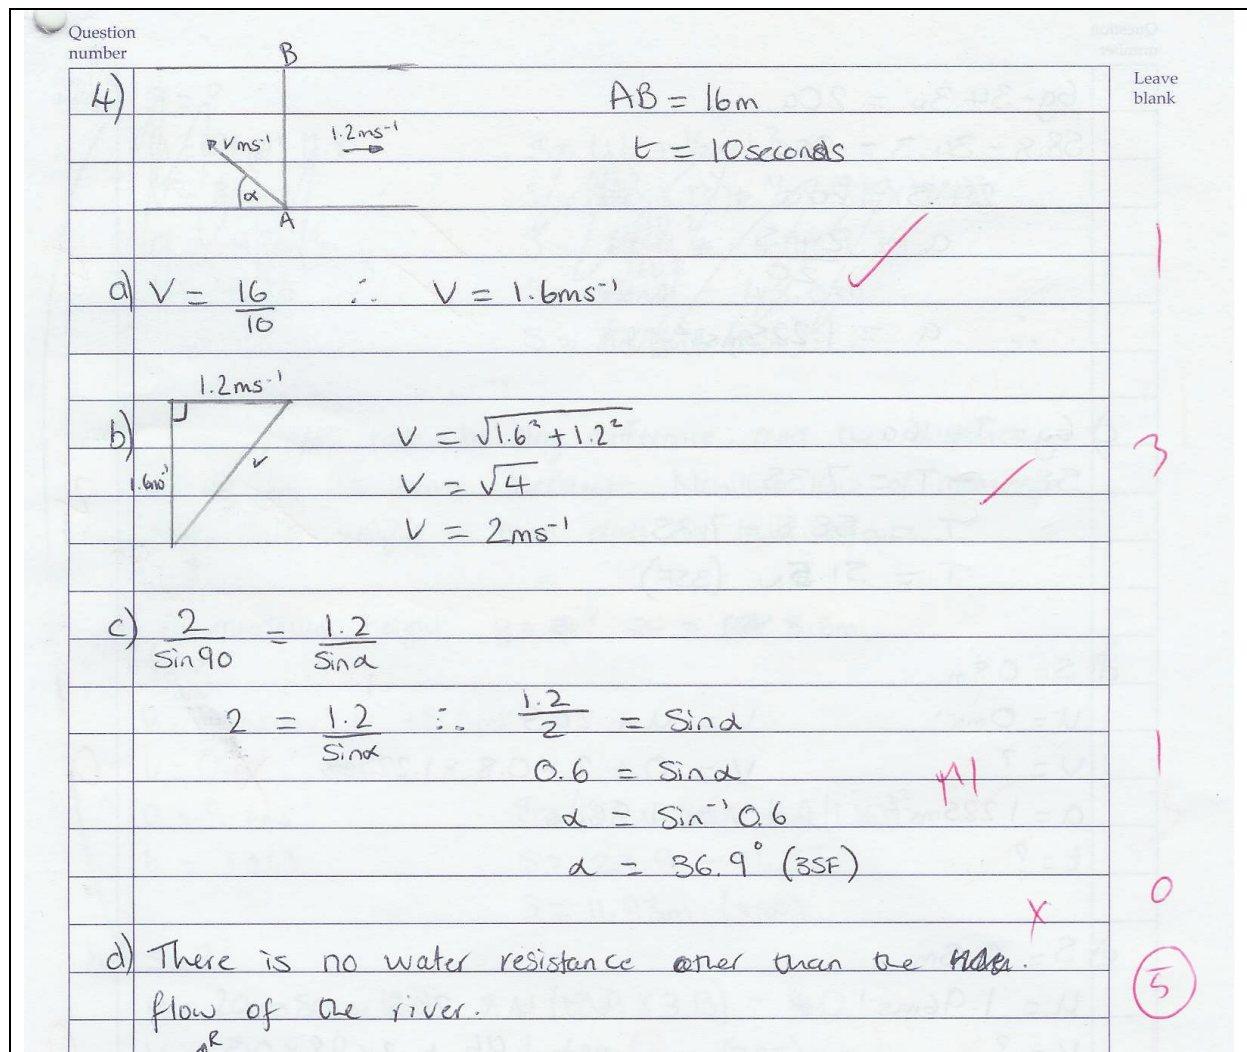 Question
number
Leave
blank
4)
B
V ms⁻¹
1.2ms⁻¹
α
A
AB = 16m
t = 10 seconds
1
a) V = 16/10 ∴ V = 1.6ms⁻¹
1.2ms⁻¹
b)
1.6ms⁻¹
V
V = √1.6² + 1.2²
V = √4
V = 2ms⁻¹
3
c) 2/Sin90 = 1.2/Sinα
2 = 1.2/Sinα ∴ 1.2/2 = Sinα
1
0.6 = Sinα
M1
α = Sin⁻¹ 0.6
α = 36.9° (3SF)
0
d) There is no water resistance other than the
flow of the river.
5
R